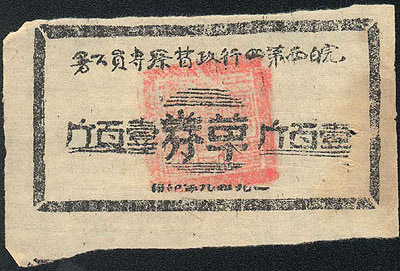 皖西第四行政督察專員公署
壹百斤 草券 壹百斤
一九四九年印